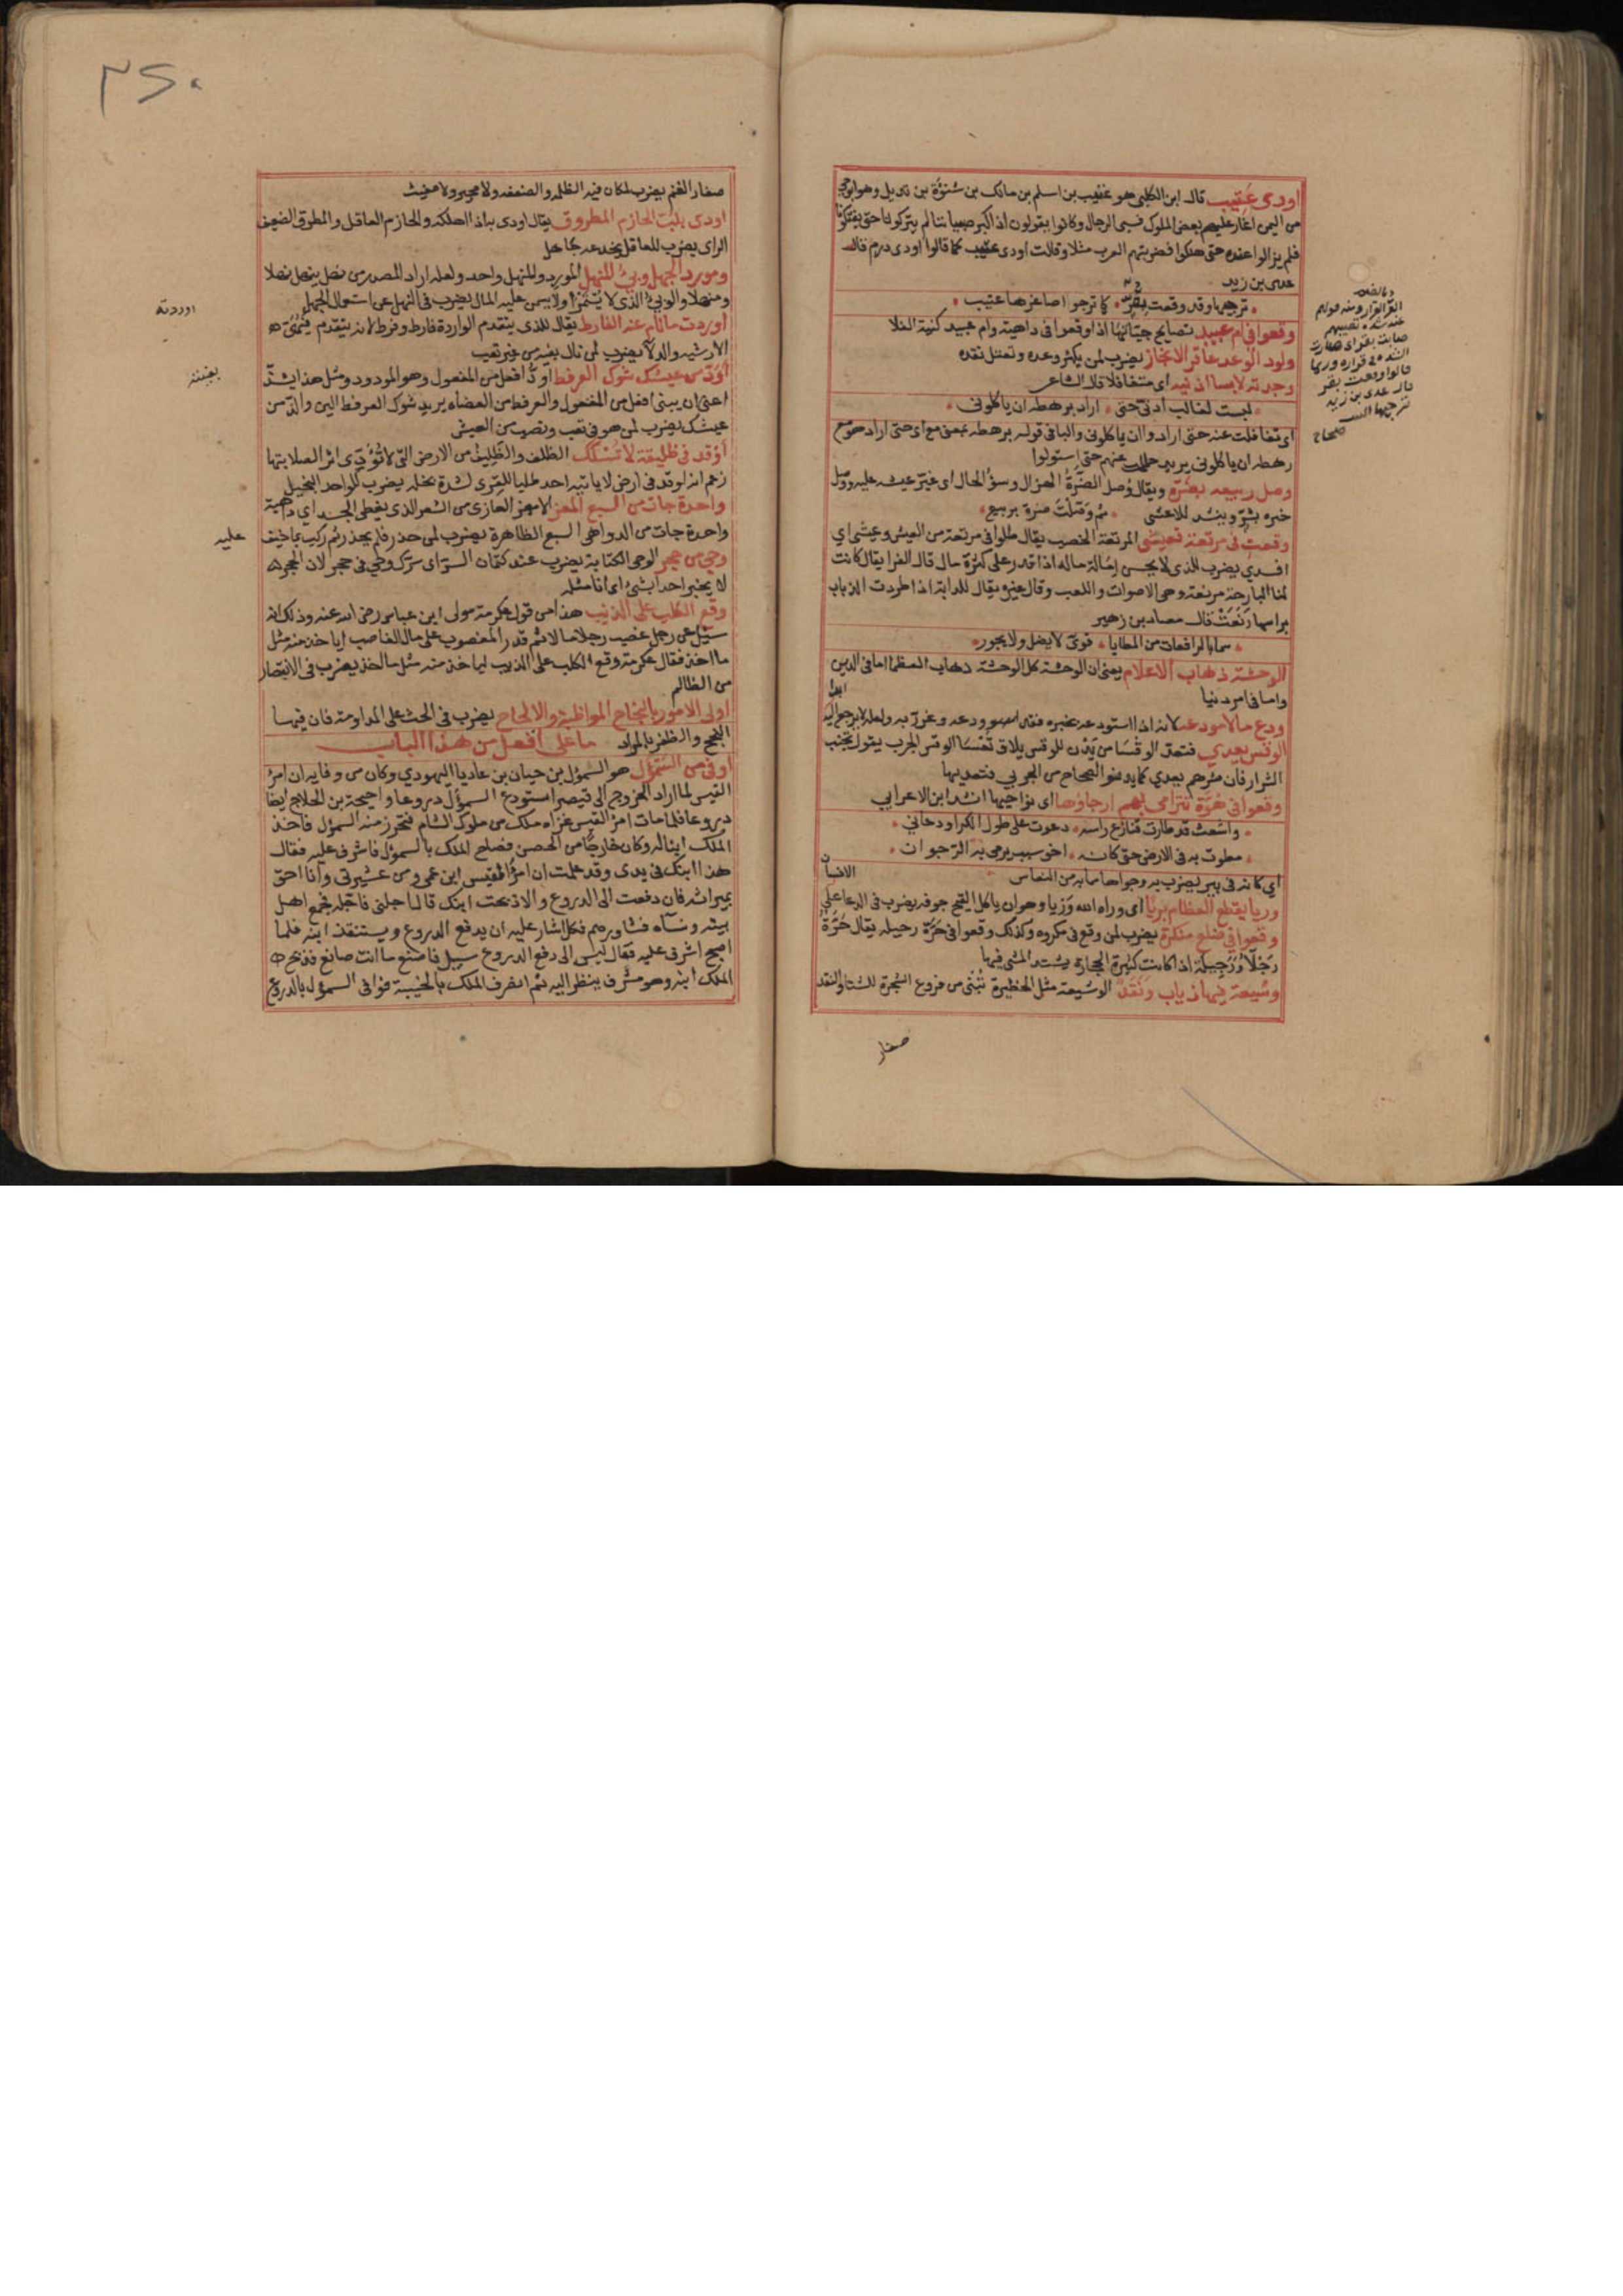 اودى عتيب قال ابن الكلبى هو عتيب بن اسلم بن مالك بن شنوة بن تديل وهو ابو حى
من اليمن اغار عليهم بعض الملوك فسبى الرجال وكانوا يقولون اذا كبر صبياننا لم يتركونا حتى يفتكونا
فلم يزالوا عنده حتى هلكوا فضربتهم العرب مثلا وقالت اودى عتيب كما قالوا اودى درم قال
عدى بن زيد
ترجيها وقد وقعت بقر كما ترجوا اصاغرها عتيب
وقعوا فى ام عبيد تصايح جناتها اذا وقعوا فى داهية وام عبيد كنية الفلا
ولود الوعد عاقر الانجاز يضرب لمن يكثر وعده وتعتل نقده
وجدته لابسا اذنيه اى متغافلا قال الشاعر
لبست لغالب اذنى حتى اراد برهطه ان ياكلونى
اى تغافلت عنه حتى اراد وان ياكلونى والبا فى قوله برهطه بمعنى مع اى حتى اراد هو مع
رهطه ان ياكلونى يريد حلمت عنهم حتى استولوا
وصل ربيعه بضرة ويقال وصل الضرة الهزال وسؤ الحال اى غير عيشه عليه ووصل
خيره بشر وينشد للاعشى ثم وصلت ضرة بربيع
وقعت فى مرتعة فعيثى المرتعة الخصب يقال ظلوا فى مرتعة من العيش وعيثى اى
افسدى يضرب للذى لا يحسن ايالة ماله اذا قدر على كثرة مال قال الفرا يقال كانت
لنا البارحة مرتعة وهى الاصوات واللعب وقال غيره يقال للدابة اذا طردت الذباب
براسها رنعت قال مصاد بن زهير
سما بالرافعات من المطايا قوى لا يضل ولا يجور
الوحشة ذهاب الاعلام يعنى ان الوحشة كل الوحشة ذهاب العظما اما فى الدين
واما فى امر دنيا
ودع مالا مودعه لانه اذا استودعه غيره فقد ودعه وغرر به ولعله لا يرجع اليه
الوقس يعدى فتعد الوقسا من يدن للوقس يلاق تعسا الوقس الجرب يقول تجنب
الشرار فان شرهم يعدى كما يدنو الصحاح من الجربى فتعديها
وقعوا فى هوة تترامى بهم ارجاؤها اى نواحيها انشد ابن الاعرابى
واشعث قد طارت قنازع راسه دعوت على طول الكرا ودعانى
مطوت به فى الارض حتى كانه اخو سبب يرمى به الرجوان
اى كانه فى بير يضرب به رجواها مما به من النعاس
وريا يقطع العظام بريا اى وراه الله وريا وهو ان ياكل القيح جوفه يضرب فى الدعا على الانسان
وقعوا فى ضلع منكرة يضرب لمن وقع فى مكروه وكذلك وقعوا فى حرة رجيله يقال حرة
رجلا ورجيلة اذا كانت كثيرة الحجارة يشتد المشى فيها
وشيعة فيها ذياب ونقد الوشيعة مثل الحظيرة تبنى من فروع الشجرة للشتا والنقد
صغار
صحاح
صغار الغنم يضرب لمكان فيه الظلمه والضعفه ولا مجير ولا مغيث
اودى بلب الحازم المطروق يقال اودى به اذا اهلكه والحازم العاقل والمطروق الضعيف
الراى يضرب للعاقل يخدعه جاهل
ومورد الجهل وبئ المنهل المورد والمنهل واحد ولعله اراد المصدر من نهل ينهل نهلا
ومنهلا والوبئ الذى لا يستمرا ولا يسمن عليه المال يضرب فى النهى عن استعمال الجهل
اوردت مالم عند الفارط يقال للذى يتقدم الواردة فارط وفرط لانه يتقدم فيهيئ
الارشيه والدلا يضرب لمن نال بغيته من غير تعب
اود من عيشك شوك العرفط اود افعل من المفعول وهو المودود ومثل هذا يشذ
اعنى ان يبنى افعل من المفعول والعرفط من العضاه يريد شوك العرفط الين والذ من
عيشك يضرب لمن هو فى تعب ونصب من العيش
اوقد فى ظليفة لا تسلك الظلف والظليف من الارض التى لا تؤدى اثرا لصلابتها
زعم انه اوقد فى ارض لا ياتيه احد طلبا للقرى لشدة بخله يضرب للواحد البخيل
واحدة جات من السبع المعز الامعز العارى من الشعر الذى يغطى الجسد اى داهية
واحدة جات من الدواهى السبع الظاهرة يضرب لمن حذر فلم يحذر ثم ركب بما خيف عليه
وحى من حجر الوحى الكتابة يضرب عند كتمان السر اى سرك وحى فى حجر لان الحجر
لا يخبر احدا بشئ اى انا مثله
وقع الكلب على الذئب هذا من قول عكرمة مولى ابن عباس رضى الله عنه وذلك انه
سئل عن رجل غصب رجلا مالا ثم قدر المغصوب على مال الغاصب اياخذ منه مثل
ما اخذ فقال عكرمة وقع الكلب على الذيب لياخذ منه مثل ما اخذ يضرب فى الانتصار
من الظالم
اولى الامور بالنجاح المواظبة والالحاح يضرب فى الحث على المداومة فان فيها
النجح والظفر بالمراد ما على افعل من هذا الباب
اوفى من السمؤل هو السمؤل بن حيان بن عاديا اليهودي وكان من وفايه ان امرؤ
القيس لما اراد الخروج الى قيصر استودع السمؤل دروعا واحيحة بن الجلاح ايضا
دروعا فلما مات امرؤ القيس غزاه ملك من ملوك الشام فتحرز منه السمؤل فاخذ
الملك ابنا له وكان خارجا من الحصن فصاح الملك بالسمؤل فاشرف عليه فقال
هذا ابنك فى يدى وقد علمت ان امرؤ القيس ابن عمى ومن عشيرتى وانا احق
بميراثه فان دفعت الى الدروع والا ذبحت ابنك قال اجلنى فاجله فجمع اهل
بيته ونساه فشاورهم فكل اشار عليه ان يدفع الدروع ويستنقذ ابنه فلما
اصبح اشرف عليه فقال ليس الى دفع الدروع سبيل فاصنع ما انت صانع فذبح
الملك ابنه وهو مشرف ينظر اليه ثم انصرف الملك بالخيبة فوافى السمؤل بالدروع